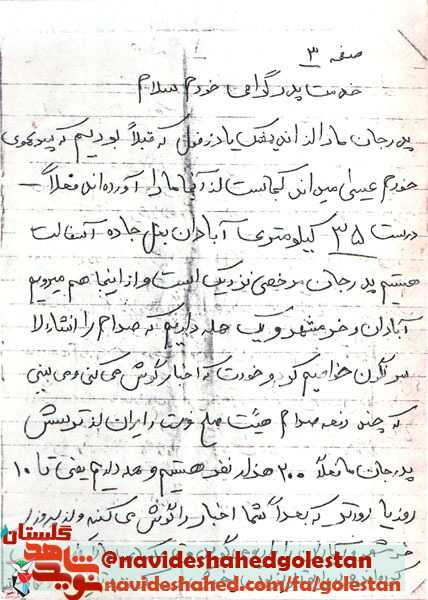 صفحه ۳
خدمت پدر گرامی خودم سلام
پدر جان ما را از اندیمشک یا دزفول که قبلاً بودیم که پسر عموی
خودم عیسی میداند کجاست از آنجا ما را آورده اند فعلاً –
درست ۳۵ کیلومتری آبادان بغل جاده آسفالت
هستیم پدر جان مرخصی نزدیک است و از اینجا هم میرویم
آبادان و خرمشهر و یک حمله داریم که صدام را انشاءالا
سرنگون خواهیم کرد و خودت که اخبار گوش می کنی و می بینی
که چند دفعه صدام هیئت صلح ایران از ترسش
پدر جان ما فعلاً ۲۰۰ هزار نفر هستیم و حمله داریم یعنی تا ۱۰
روز یا زودتر که بعداً شما اخبار را گوش می کنید و
خرمشهر
گلستان
نوید شاهد
@navideshahedgolestan
navideshahed.com/fa/golestan